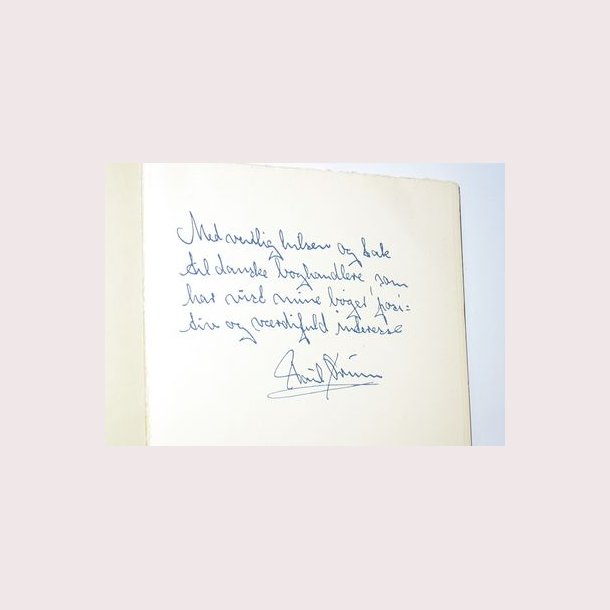 Med venlig hilsen og tak
til danske boghandlere, som
har vist mine bøger posi=
tiv og værdifuld interesse